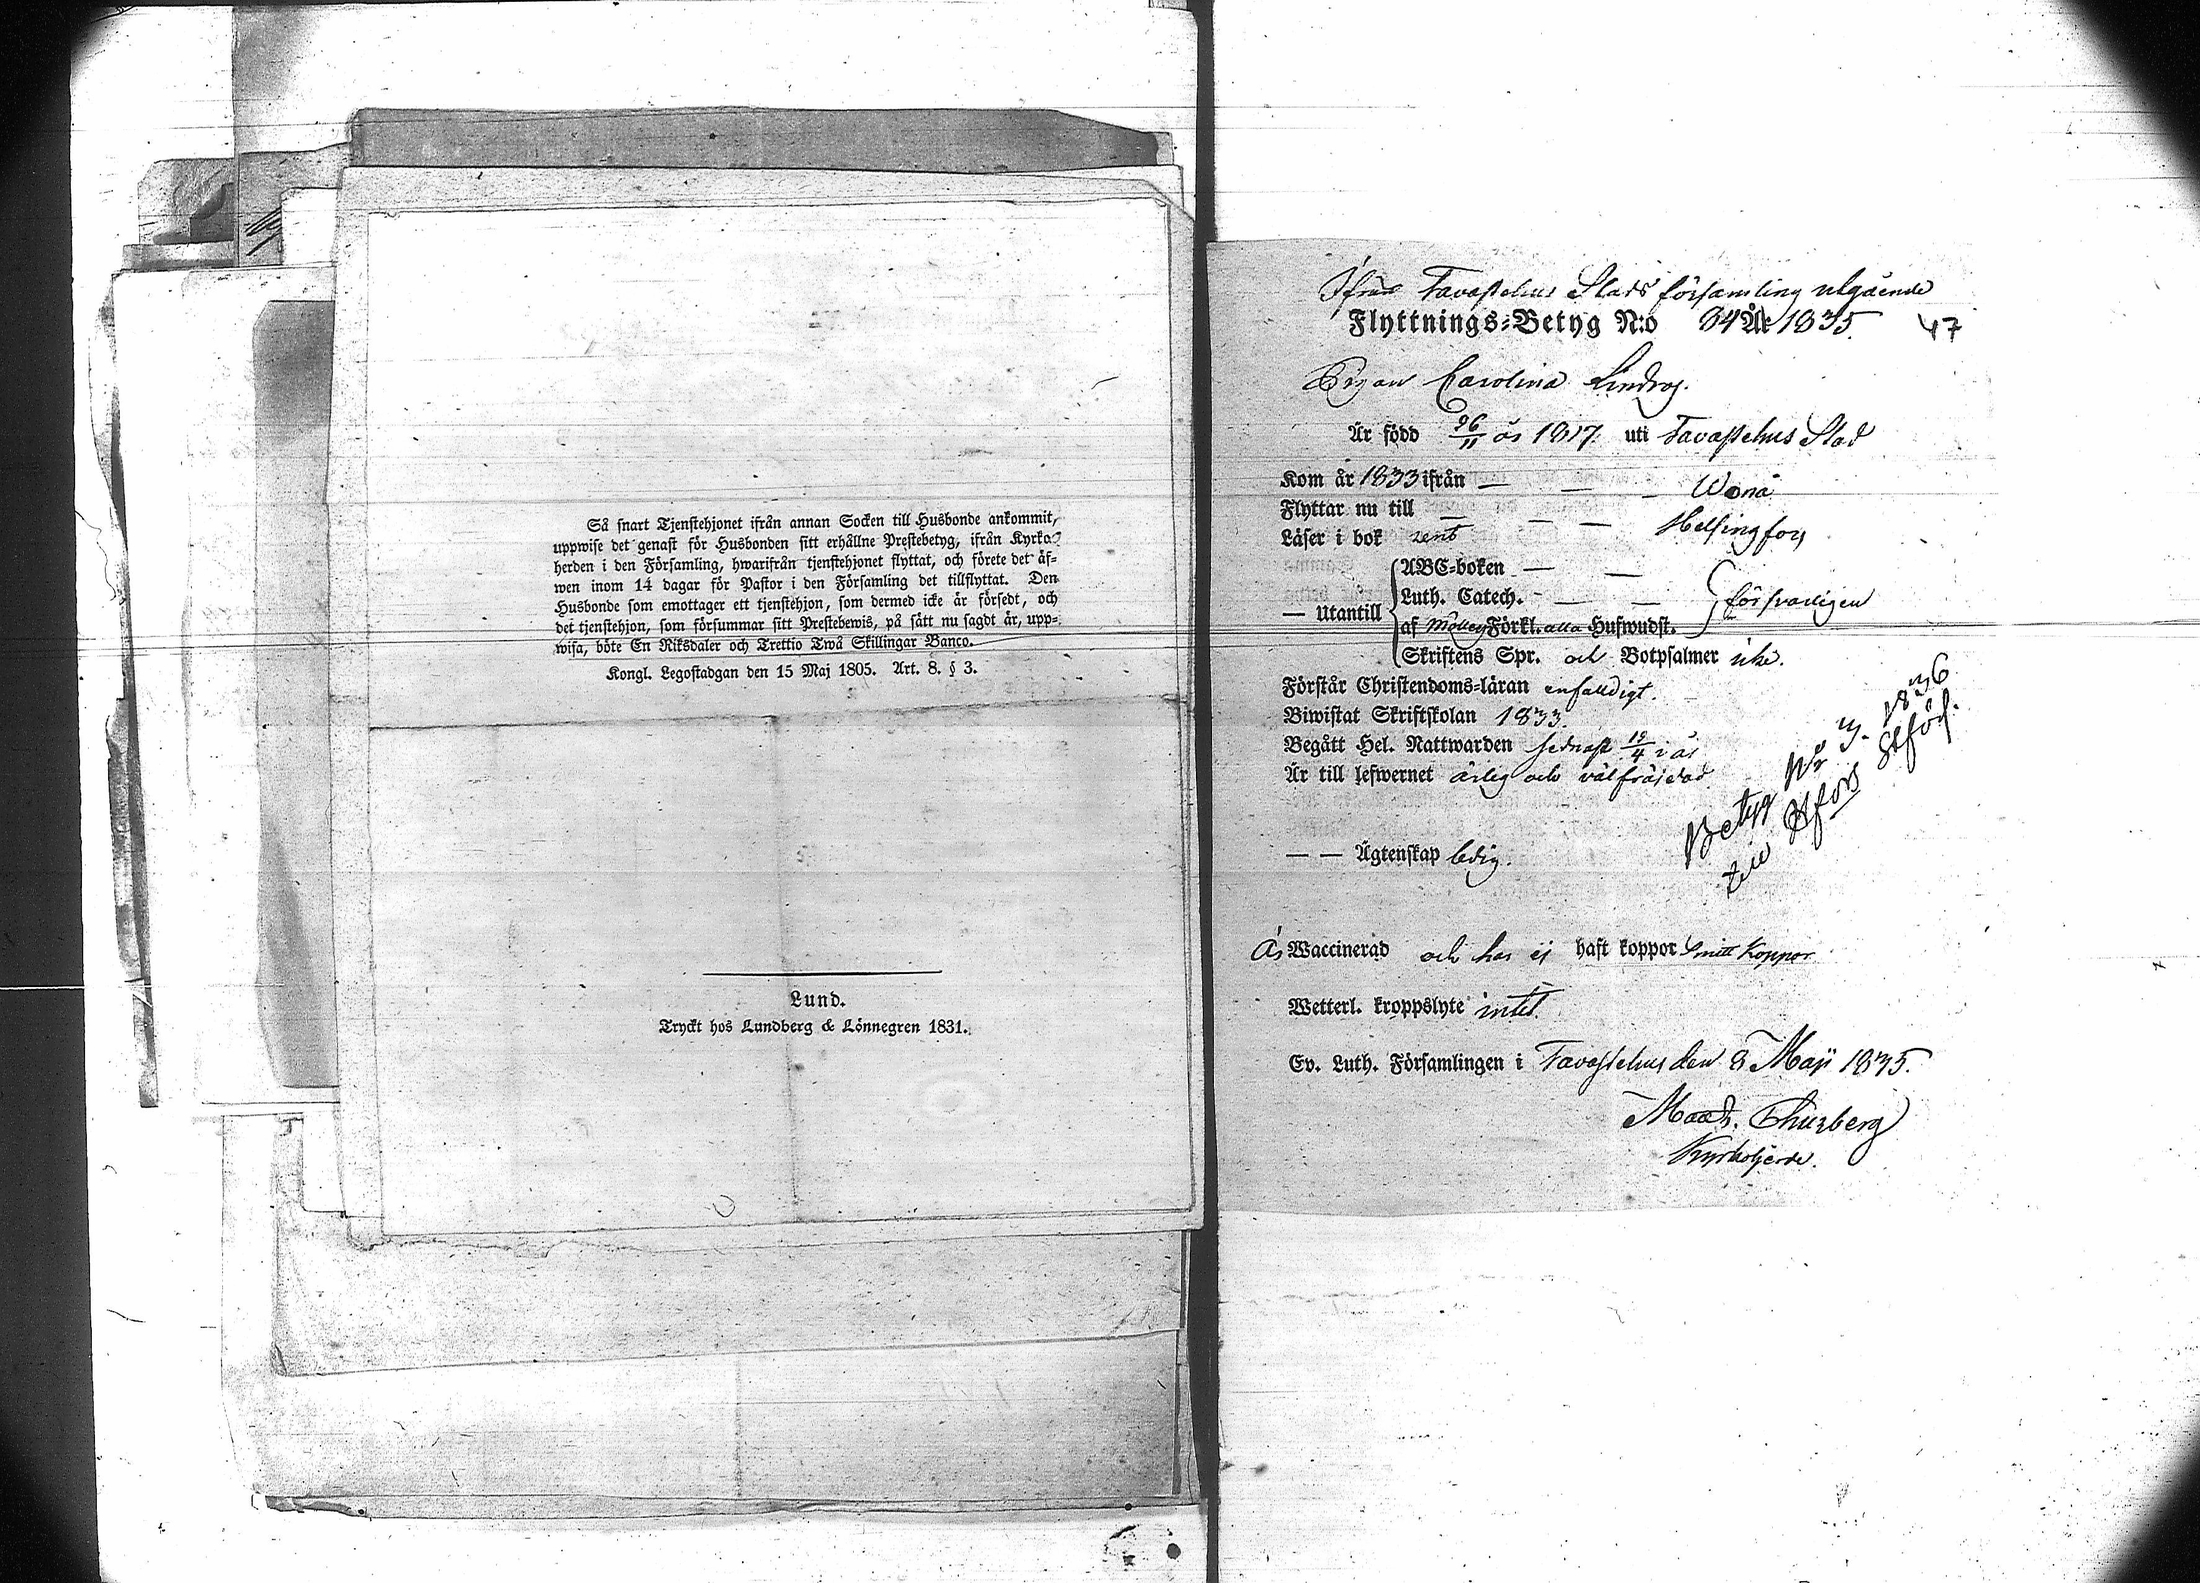 Så snart Tjenstehjonet ifrån annan Socken till Husbonde ankommit,
uppwise det genast för Husbonden sitt erhållne Prestebetyg, ifrån Kyrko-
herden i den Församling, hwarifrån tjenstehjonet flyttat, och förete det äf-
wen inom 14 dagar för Pastor i den Församling det tillflyttat. Den
Husbonde som emottager ett tjenstehjon, som dermed icke är försedt, och
det tjenstehjon, som försummar sitt Prestebewis, på sätt nu sagdt är, upp-
wisa, böte En Riksdaler och Trettio Twå Skillingar Banco.
Kongl. Legostadgan den 15 Maj 1805. Art. 8. § 3.
Lund.
Tryckt hos Lundberg & Lönnegren 1831.
Ifrån Tavastehus Stads församling utgående
Flyttnings-Betyg N:o 34 År 1835.
47
Pigan Carolina Lindros.
Är född 26/11 år 1817. uti Tavastehus Stad
Kom år 1833 ifrån — — — Wånå
Flyttar nu till — — — Helsingfors
Läser i bok rent
ABC-boken — —
Luth. Catech. — — —
— Utantill försvarligen
af Förkl. alla Hufwudst.
Skriftens Spr. och Botpsalmer icke.
Förstår Christendoms-läran enfaldigt.
Biwistat Skriftskolan 1833.
Begått Hel. Nattwarden sednast 19/4 i år
Är till lefwernet ärlig och välfräjdad
— — Ägtenskap ledig.
Betyg Nr 3. 1836
till Hfors
Är Waccinerad och har ej haft koppor Smitt Koppor
Wetterl. kroppslyte intet.
Ev. Luth. Församlingen i Tavastehus den 8 Maji 1835.
Thurberg
Kyrkoherde.